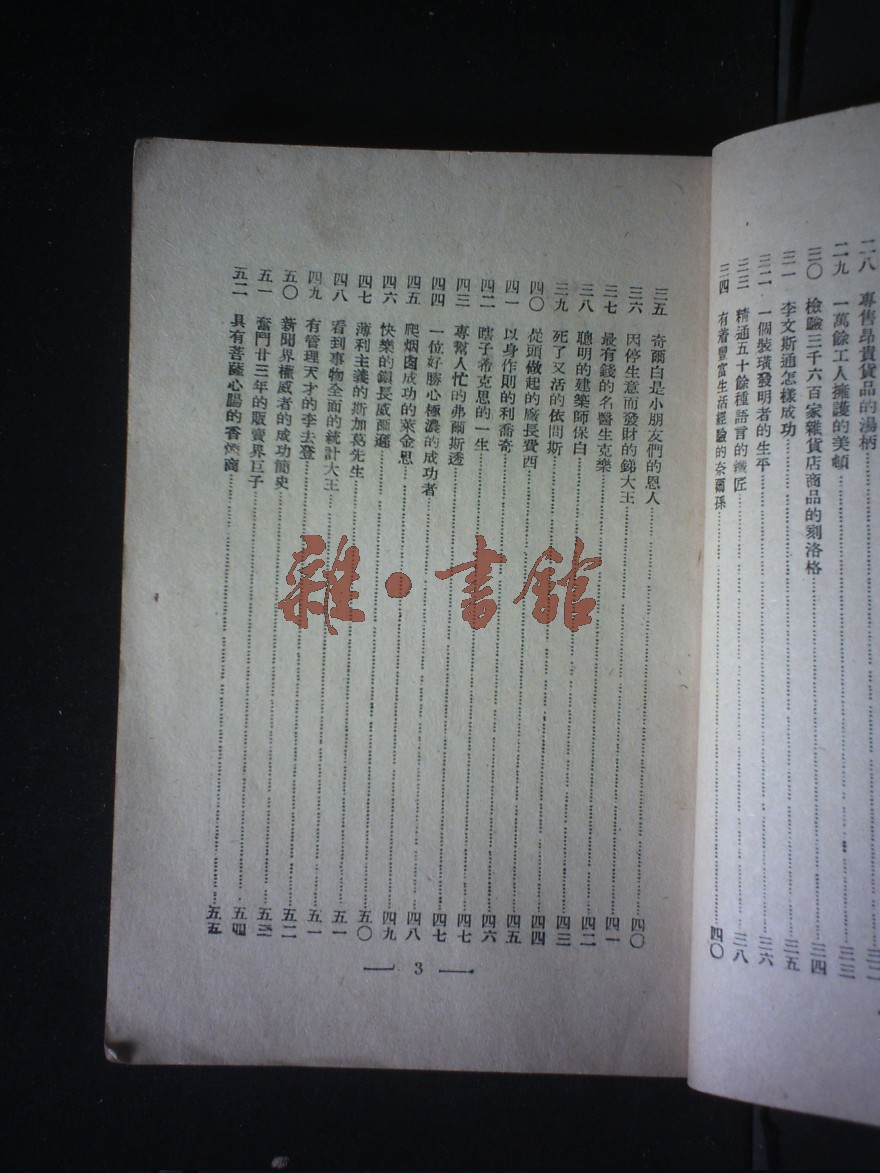 二八 專售昂貴貨品的湯柄 三二
二九 一萬餘工人擁護的美頓 三三
三〇 檢驗三千六百家雜貨店商品的刻洛格 三四
三一 李文斯通怎樣成功 三五
三二 一個裝璜發明者的生平 三六
三三 精通五十餘種語言的鐵匠 三八
三四 有着豐富生活經驗的奈爾孫 四〇
三五 奇爾白是小朋友們的恩人 四〇
三六 因停生意而發財的銻大王 四一
三七 最有錢的名醫生克樂 四二
三八 聰明的建築師保白 四三
三九 死了又活的依問斯 四四
四〇 從頭做起的廠長費西 四五
四一 以身作則的利喬奇 四六
四二 瞎子希克思的一生 四七
四三 專幫人忙的弗爾斯透 四七
四四 一位好勝心極濃的成功者 四八
四五 爬烟囱成功的萊金思 四九
四六 快樂的鎮長威爾遜 五〇
四七 薄利主義的斯加葛先生 五一
四八 看到事物全面的統計大王 五一
四九 有管理天才的李去登 五二
五〇 新聞界權威者的成功簡史 五三
五一 奮鬥廿三年的販賣界巨子 五四
五二 具有菩薩心腸的香烟商 五五
3
雜·書館